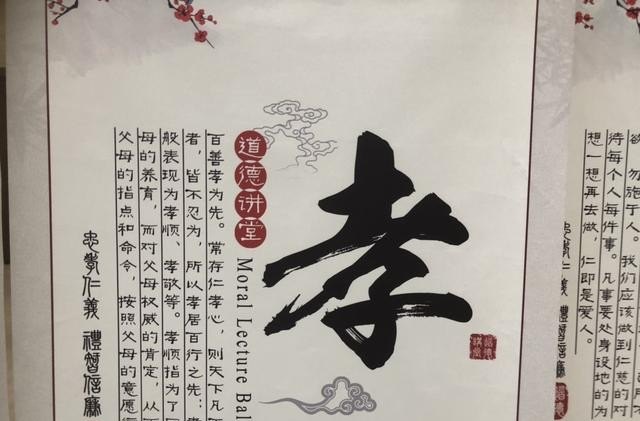 欲，勿施于人。我们应该做到仁慈的对
待每个人每件事。凡事要处身设地的为
想一想再去做，仁即是爱人。
忠孝仁義 禮智信廉
孝
道德讲堂
道德讲堂
Moral Lecture
百善孝为先。常存仁孝心，则天下凡
者，皆不忍为，所以孝居百行之先；
般表现为孝顺、孝敬等。孝顺指为了
母的养育，而对父母权威的肯定，从
父母的指点和命令，按照父母的意愿
忠孝仁義 禮智信廉